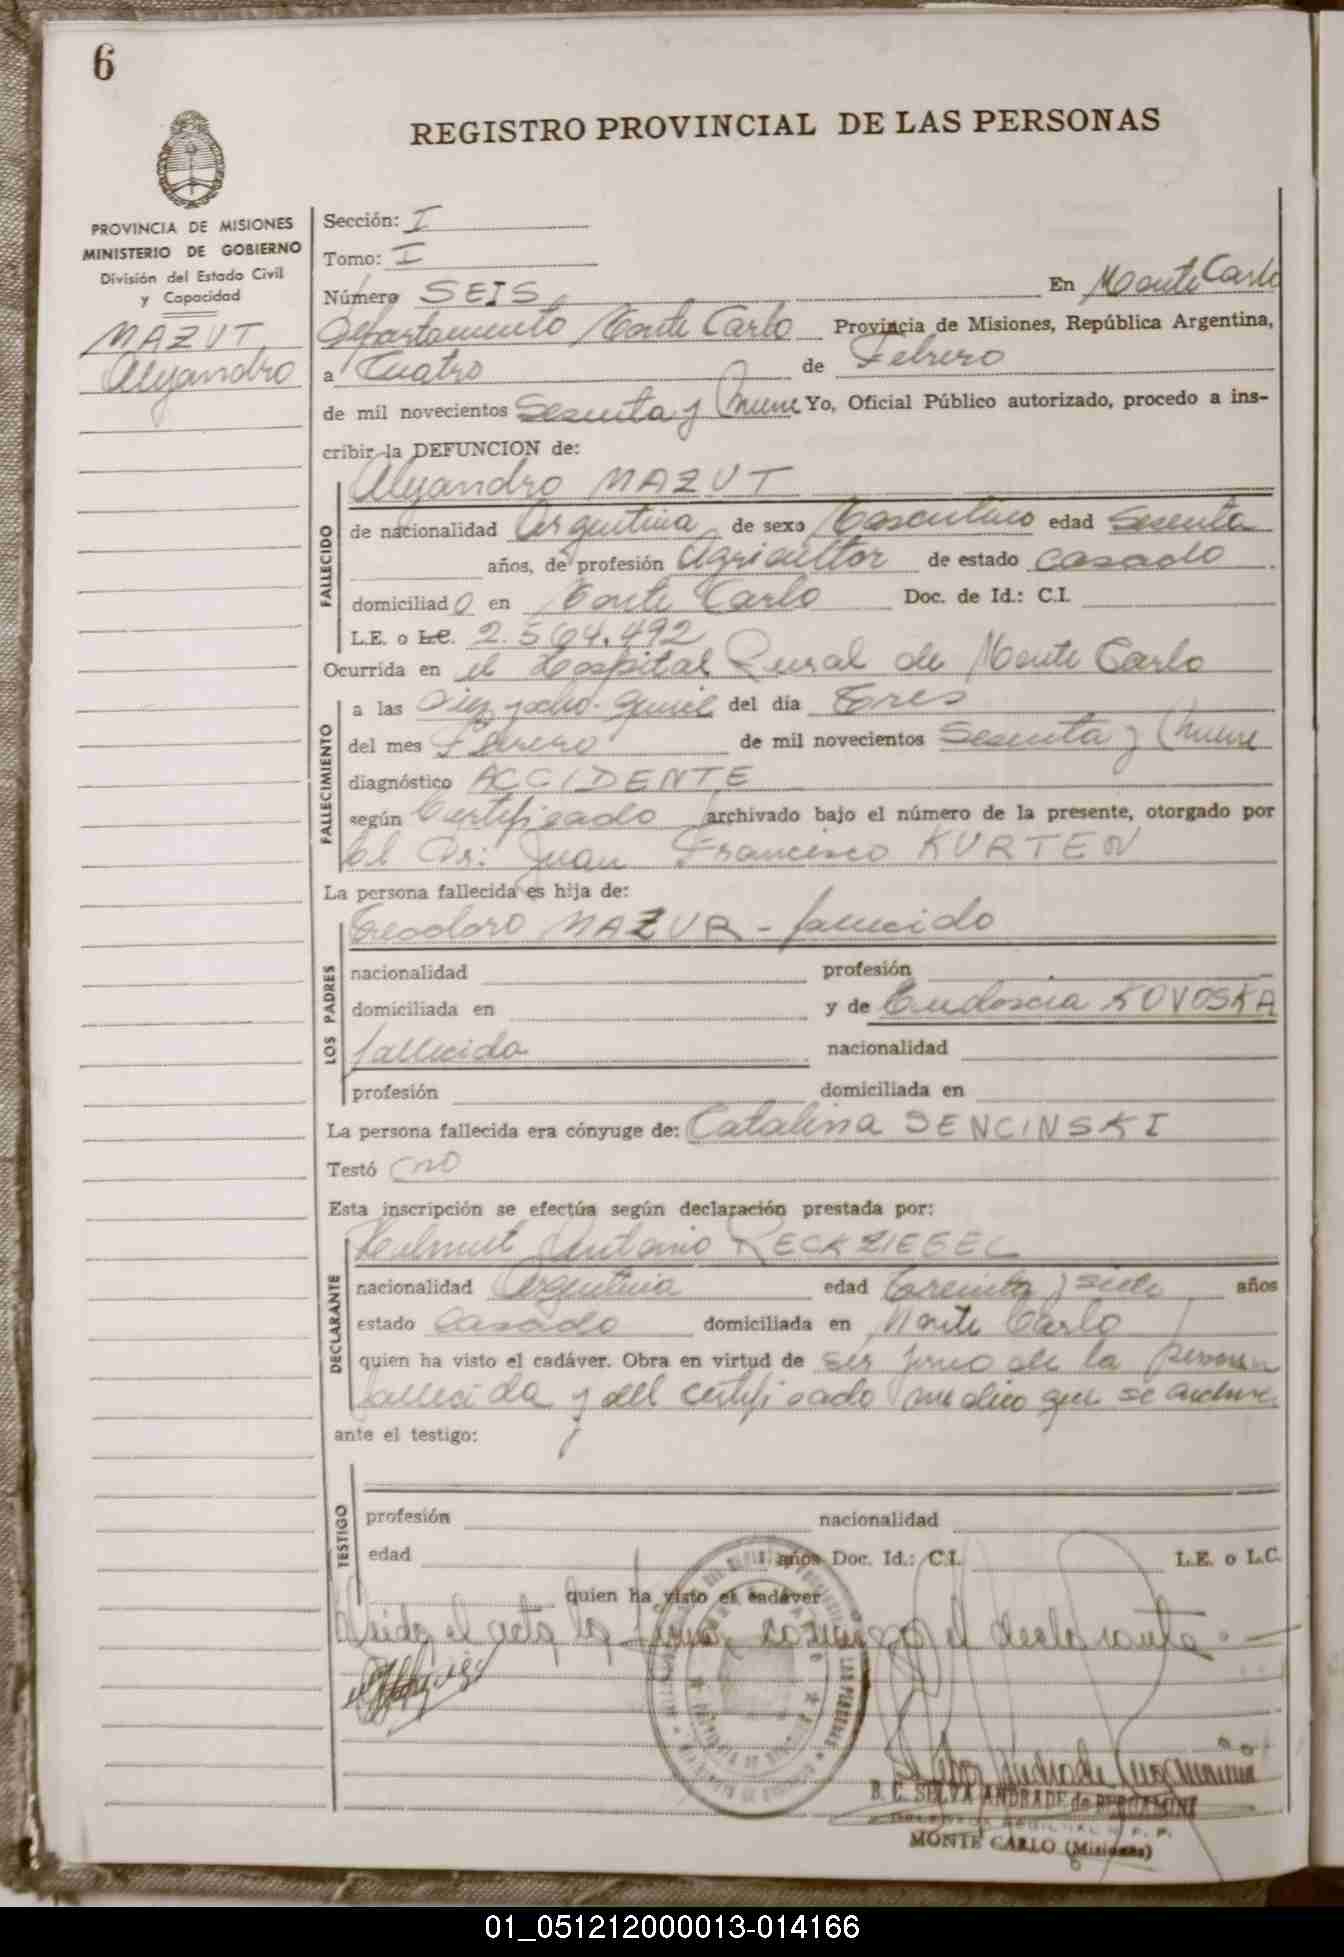 6
REGISTRO PROVINCIAL DE LAS PERSONAS
PROVINCIA DE MISIONES
MINISTERIO DE GOBIERNO
División del Estado Civil
y Capacidad
MAZUT
Alejandro
Sección: I
Tomo: I
Número SEIS En Monte Carlo
Departamento Monte Carlo Provincia de Misiones, República Argentina,
a Cuatro de Febrero
de mil novecientos Sesenta y Nueve Yo, Oficial Público autorizado, procedo a ins-
cribir la DEFUNCION de:
FALLECIDO
Alejandro MAZUT
de nacionalidad Argentina de sexo Masculino edad Sesenta
años, de profesión Agricultor de estado casado
domiciliado en Monte Carlo Doc. de Id.: C.I.
L.E. o L.C. 2.564.492
Ocurrida en el Hospital Rural de Monte Carlo
FALLECIMIENTO
a las diez y ocho quince del día Tres
del mes Febrero de mil novecientos Sesenta y Nueve
diagnóstico ACCIDENTE
según Certificado archivado bajo el número de la presente, otorgado por
el Dr: Juan Francisco KURTEN
La persona fallecida es hija de:
LOS PADRES
Teodoro MAZUR - fallecido
nacionalidad profesión
domiciliada en y de Eudoscia KOVOSKA
fallecida nacionalidad
profesión domiciliada en
La persona fallecida era cónyuge de: Catalina SENCINSKI
Testó no
Esta inscripción se efectúa según declaración prestada por:
DECLARANTE
Helmut Antonio RECKZIEGEL
nacionalidad Argentina edad Treinta y siete años
estado Casado domiciliada en Monte Carlo
quien ha visto el cadáver. Obra en virtud de ser yerno de la persona
fallecida y del certificado medico que se archiva
ante el testigo:
TESTIGO
profesión nacionalidad
edad años Doc. Id.: C.I. L.E. o L.C.
quien ha visto el cadáver
Leida el acta la firma conmigo el declarante.
B. C. SELVA ANDRADE de BERGAMINI
MONTE CARLO (Misiones)
01_051212000013-014166